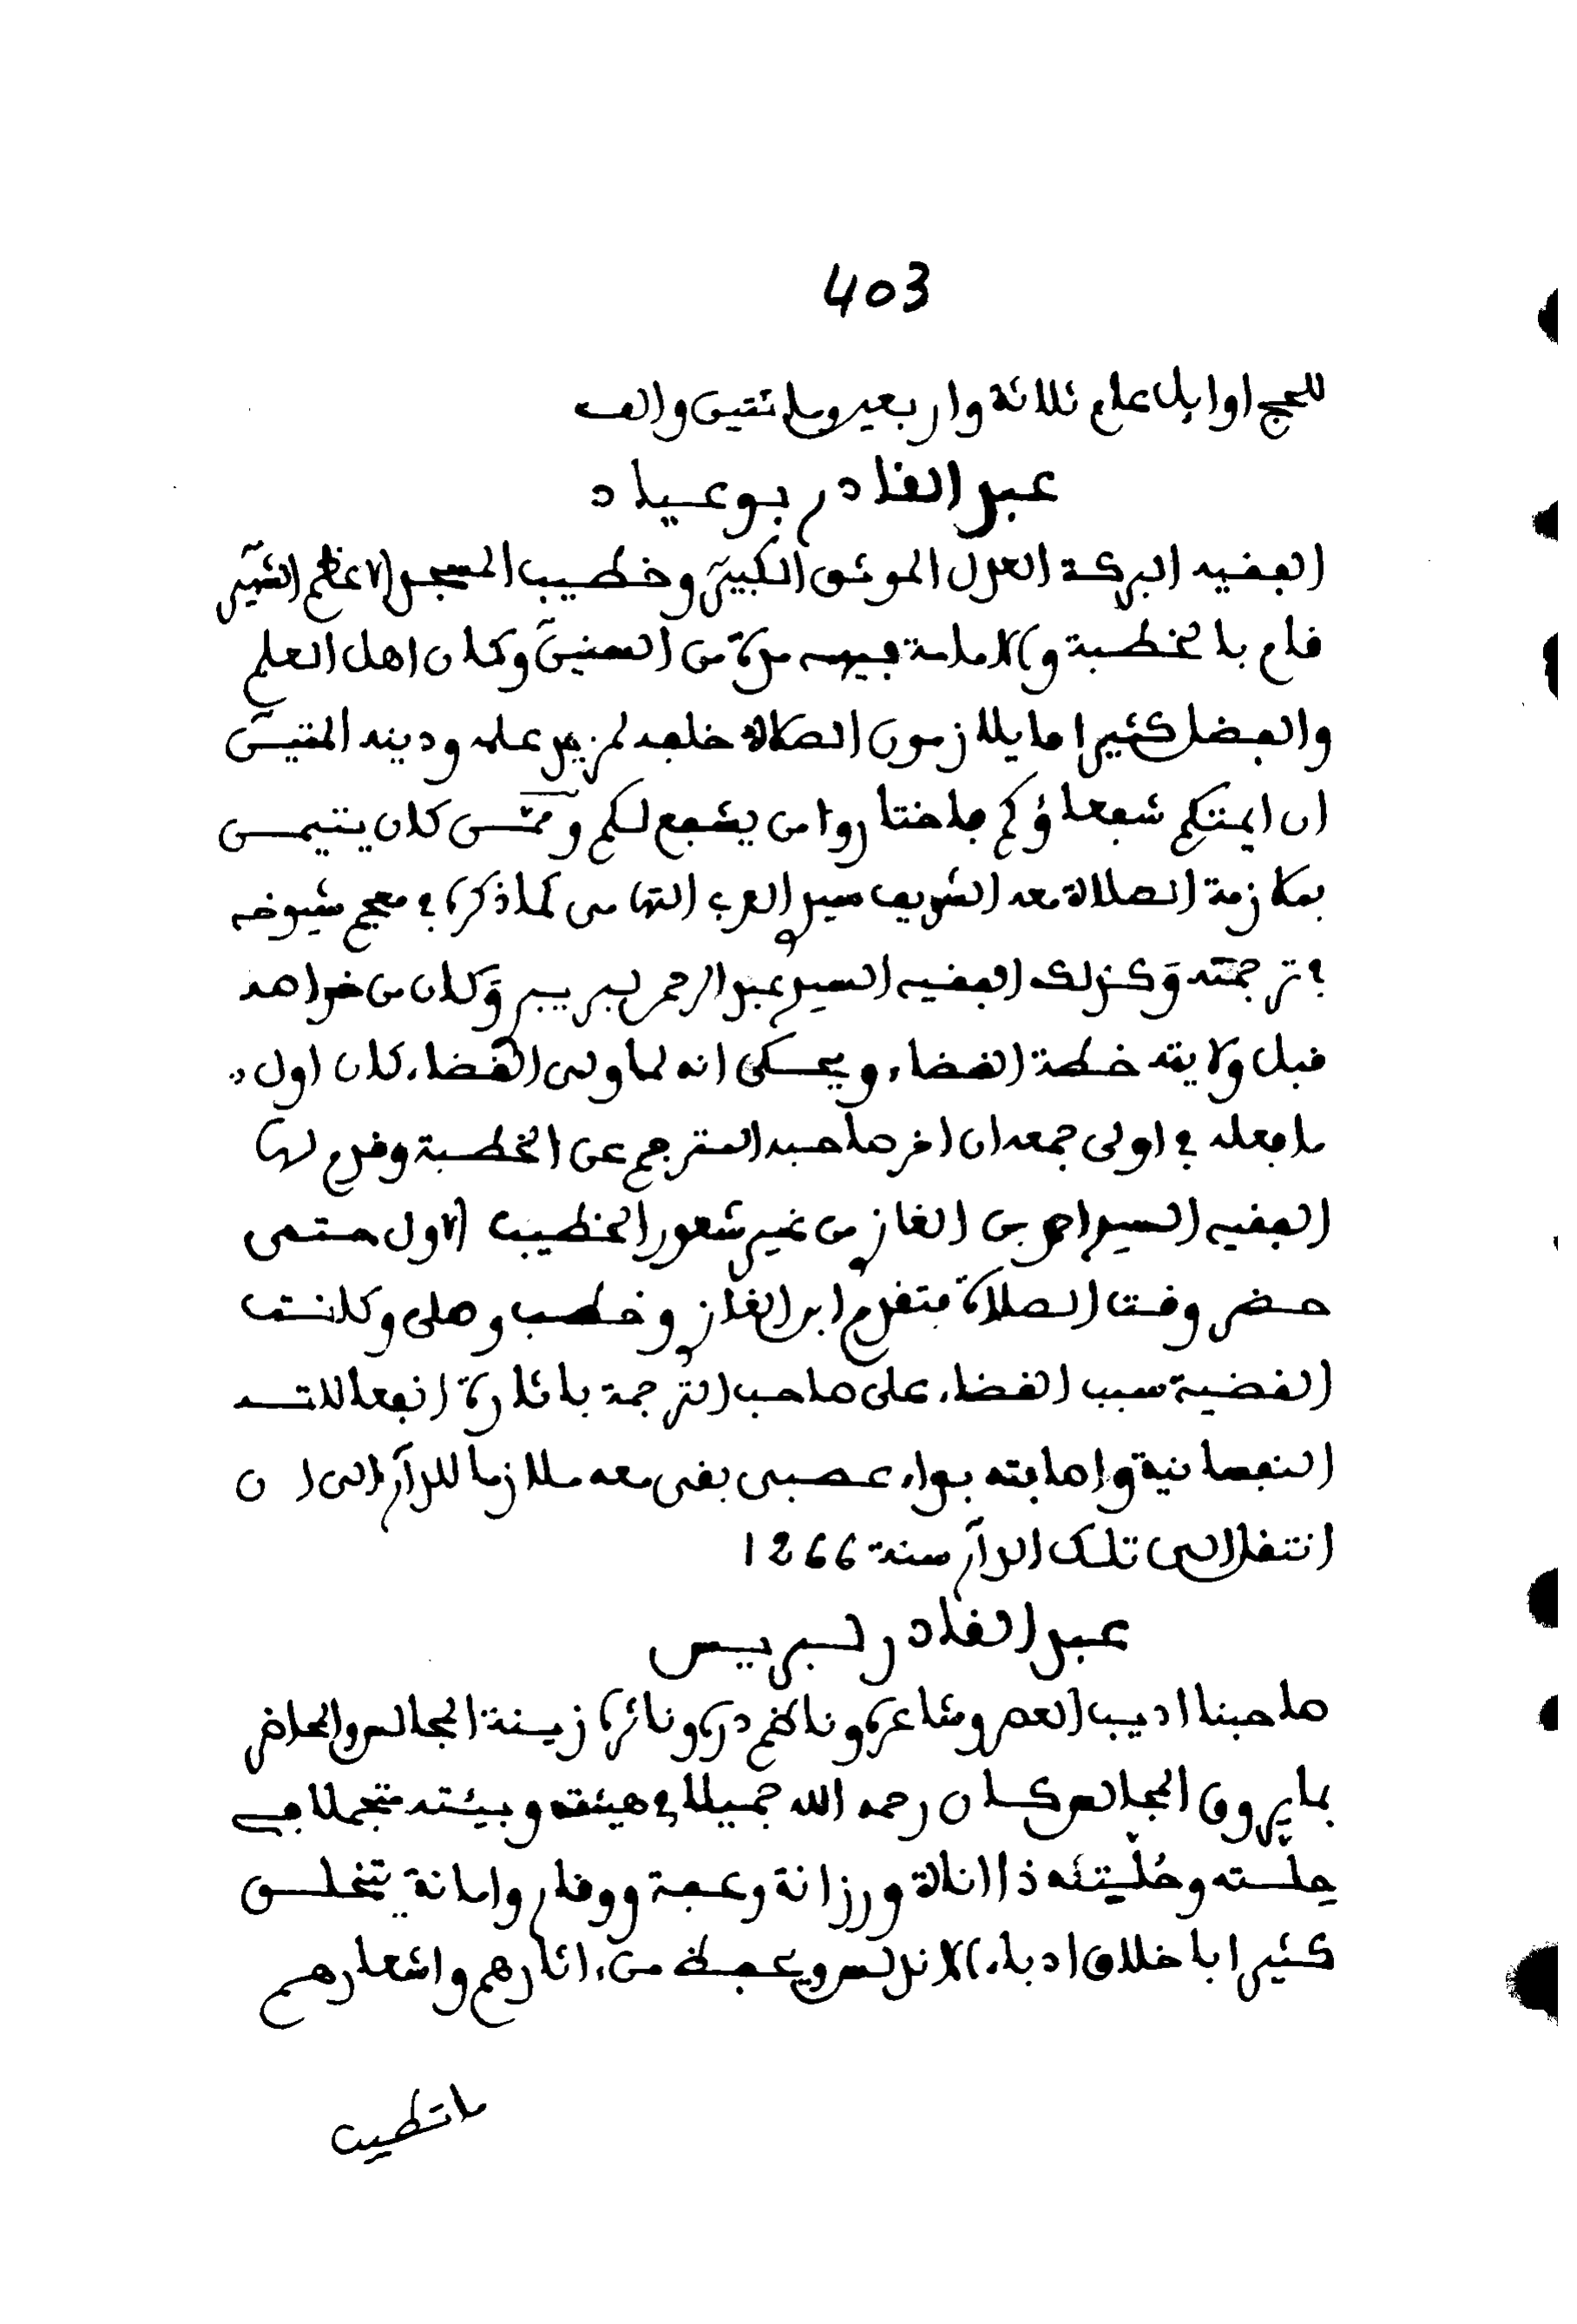 403
للحج اوايل عام ثلاثة واربعين ومائتين والف
عبد القادر بوعياد
الفقيه البركة العدل الموثق الكبير وخطيب المسجد الاعظم الشهير
قام بالخطبة والامامة فيه مدة من السنين وكان اهل العلم
والفضل كثيرا ما يلازمون الصلاة خلفه لمزيد علمه ودينه المتين
ان ايمتكم شفعاؤكم فاختاروا من يشفع لكم وممن كان يتيمن
بملازمة الصلاة معه الشريف سيدي العربي التهامي كما ذكره في معجم شيوخه
في ترجمته وكذلك الفقيه السيد عبد الرحمن لبريبر وكان من خواصه
قبل ولايته خطة القضاء ويحكى انه لما ولي القضاء كان اول
ما فعله في اولى جمعه ان اخر صاحبه المترجم عن الخطبة وقدم لها
الفقيه السيد احمد بن الغازي من غير شعور الخطيب الاول حتى
حضر وقت الصلاة فتقدم ابن الغازي وخطب وصلى وكانت
القضية سبب القضاء على صاحب الترجمة باثارة انفعالاته
النفسانية واصابته بداء عصبي بقي معه ملازما للدار الى ان
انتقل الى تلك الدار سنة 1266
عبد القادر لبريس
صاحبنا اديب العصر وشاعره وناظم دره وناثره زينة المجالس والمحاضر
بما يروق المجالس كان رحمه الله جميلا في هيئته وبيئته متجملا في
جلسته وحُليته ذا اناة ورزانة وعفة ووقار وامانة يتخلق
كثيرا باخلاق ادباء الاندلس ويحفظ من اثارهم واشعارهم
ما تطيب